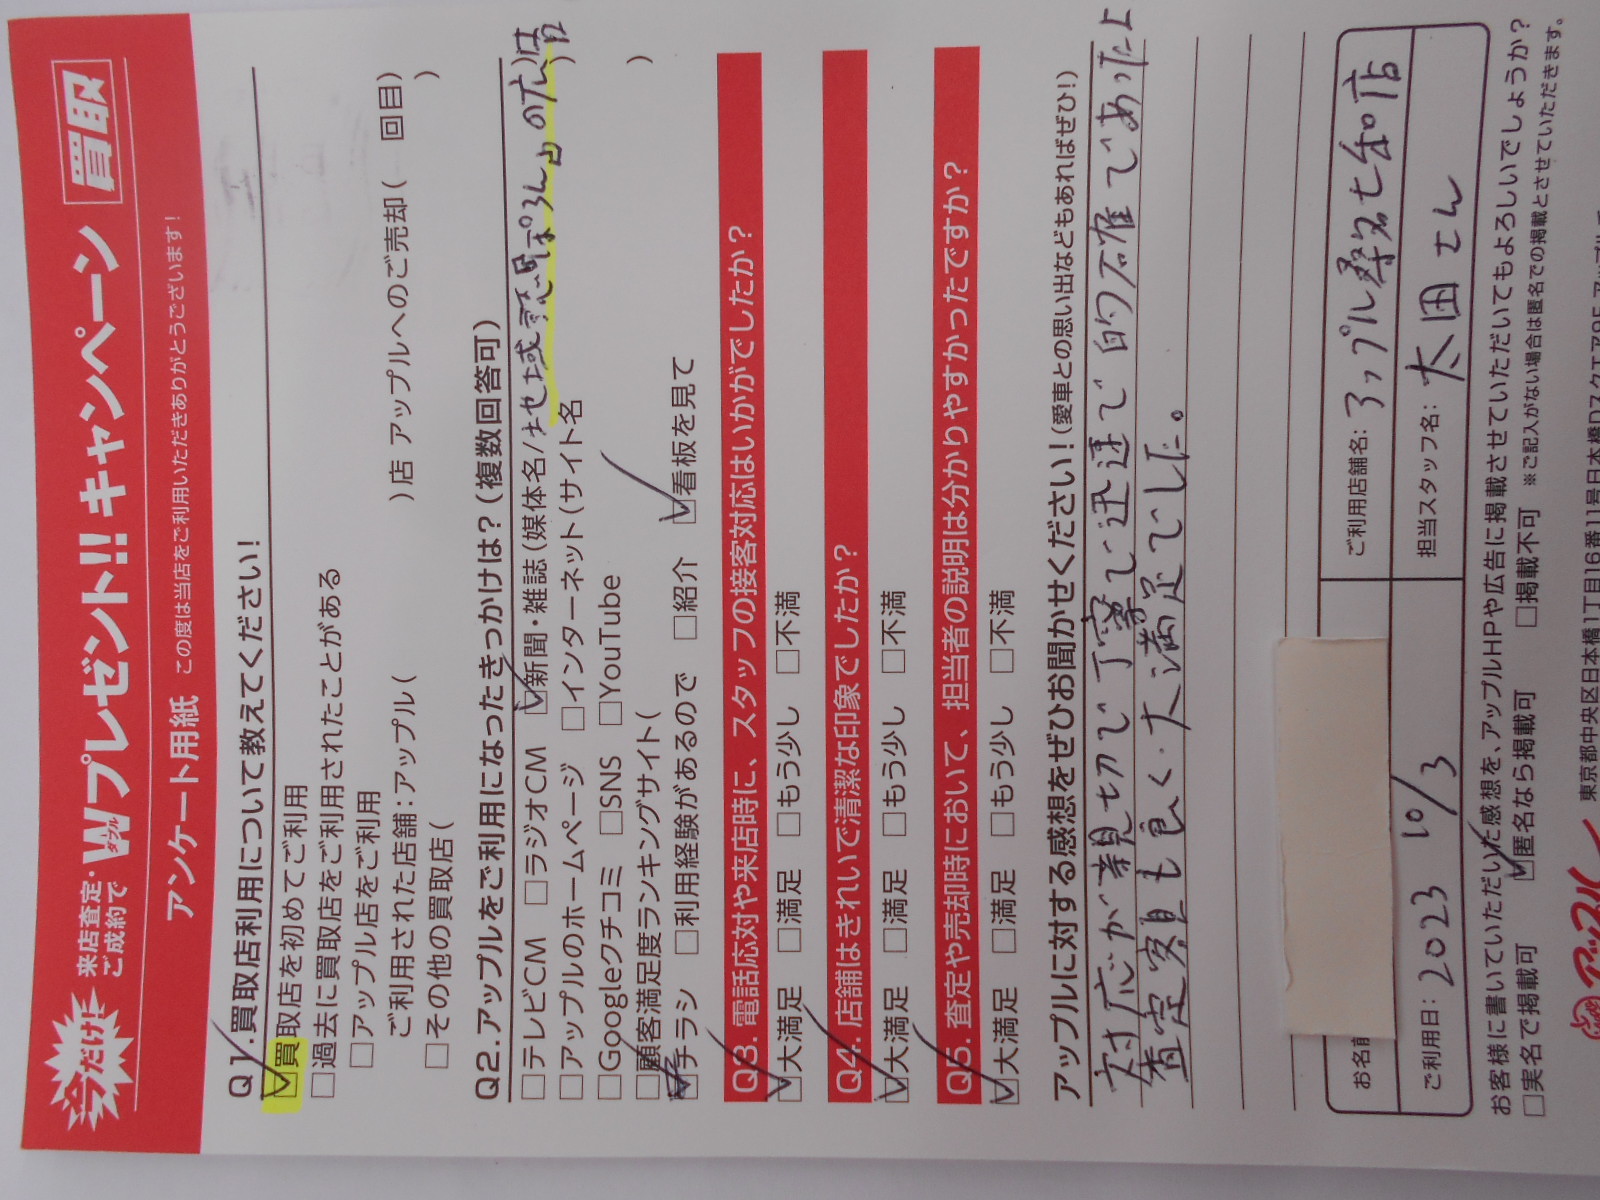 今だけ! 来店査定・ご成約で Wプレゼント!! キャンペーン 買取
ダブル
アンケート用紙 この度は当店をご利用いただきありがとうございます!
Q1.買取店利用について教えてください!
☑買取店を初めてご利用
□過去に買取店をご利用されたことがある
□アップル店をご利用
ご利用された店舗:アップル( )店 アップルへのご売却( 回目)
□その他の買取店( )
Q2.アップルをご利用になったきっかけは?(複数回答可)
□テレビCM □ラジオCM ☑新聞・雑誌(媒体名/地域 ぽろんの広告)
□アップルのホームページ □インターネット(サイト名 )
□Googleクチコミ □SNS □YouTube
□顧客満足度ランキングサイト( )
☑チラシ □利用経験があるので □紹介 ☑看板を見て
Q3.電話応対や来店時に、スタッフの接客対応はいかがでしたか?
☑大満足 □満足 □もう少し □不満
Q4.店舗はきれいで清潔な印象でしたか?
☑大満足 □満足 □もう少し □不満
Q5.査定や売却時において、担当者の説明は分かりやすかったですか?
☑大満足 □満足 □もう少し □不満
アップルに対する感想をぜひお聞かせください!(愛車との思い出などもあればぜひ!)
対応が親切で丁寧で迅速で的確であった上
査定額も良く、大満足でした。
お名前
ご利用店舗名:アップル桑名七和店
ご利用日:2023 10/3
担当スタッフ名:太田さん
お客様に書いていただいた感想を、アップルHPや広告に掲載させていただいてもよろしいでしょうか?
□実名で掲載可 ☑匿名なら掲載可 □掲載不可 ※ご記入がない場合は匿名での掲載とさせていただきます。
アップル 東京都中央区日本橋1丁目16番11号日本橋Dスクエア9F